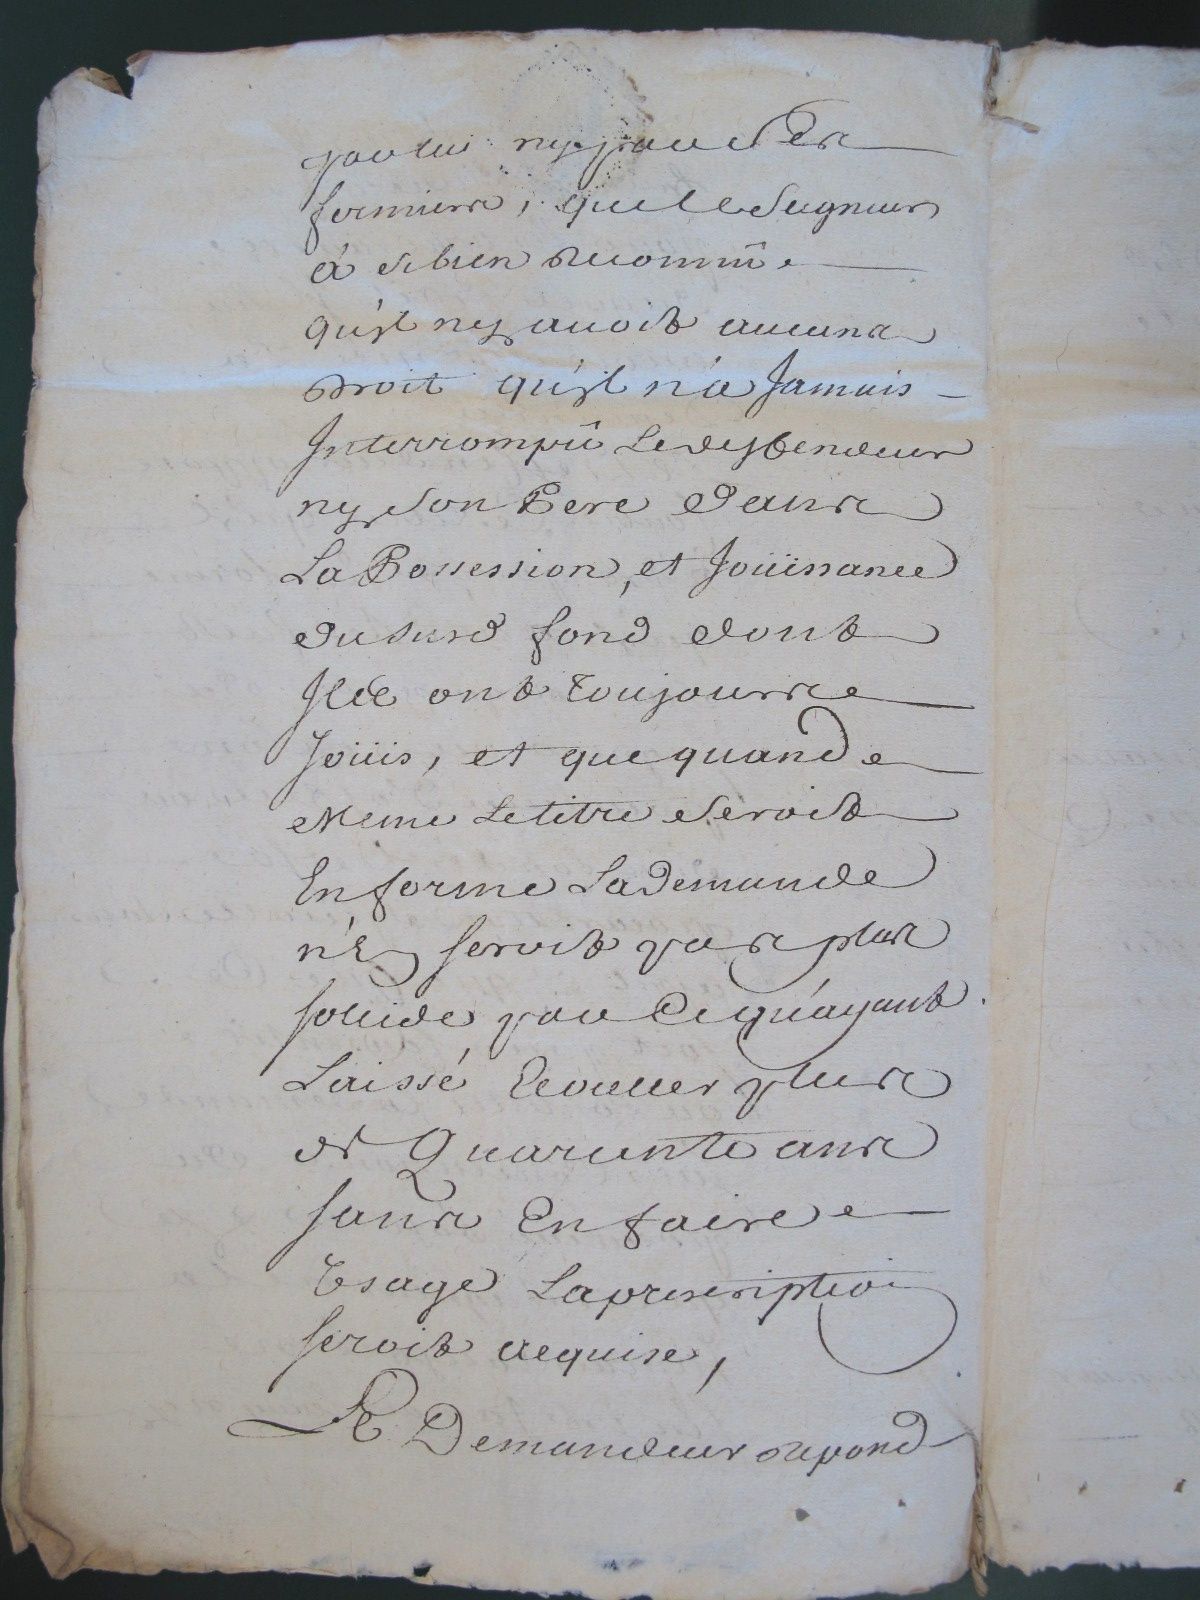 par lui ny par Ses
fermiers, que le Seigneur
à si bien reconnû
qu'jl ny avoit aucuns
Droit qu'jl n'a Jamais
Interrompû Le deffendeur
ny Son Pere dans
La Possession, et Joüissance
du surd fond dont
Jls ont toujours
Joüis, et que quand
Meme Le titre Seroit
En forme La Demande
n'En seroit pas plus
solide par ce qu'ayant
Laissé Ecouller plus
de Quarante ans
sans En faire
Vsage La prescription
seroit acquise,
Le Demandeur repond